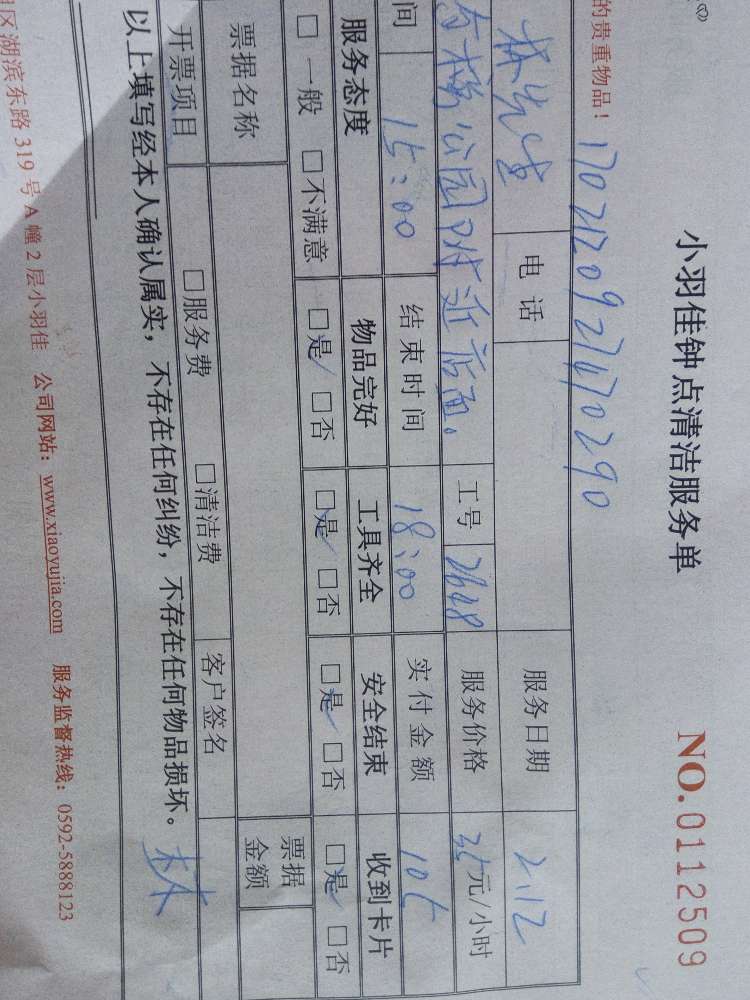 小羽佳钟点清洁服务单
NO.0112509
的贵重物品！ 1702120927470290
林先生 电话 服务日期 2.12
公园附近店面。 工号 2648 服务价格 35元/小时
间 15:00 结束时间 18:00 实付金额 105
服务态度 物品完好 工具齐全 安全结束 收到卡片
□一般 □不满意 □是 □否 □是 □否 □是 □否 □是 □否
票据名称 票据金额
开票项目 □服务费 □清洁费 客户签名 林
以上填写经本人确认属实，不存在任何纠纷，不存在任何物品损坏。
区湖滨东路319号A幢2层小羽佳 公司网站：www.xiaoyujia.com 服务监督热线：0592-5888123